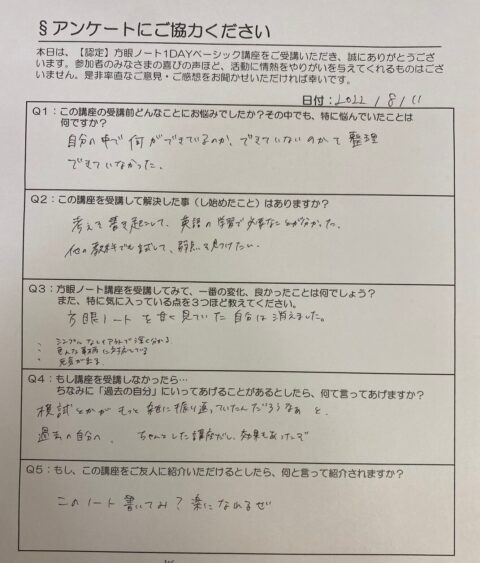 §アンケートにご協力ください
本日は、【認定】方眼ノート1DAYベーシック講座をご受講いただき、誠にありがとうござ
います。参加者のみなさまの喜びの声ほど、活動に情熱をやりがいを与えてくれるものはござ
いません。是非率直なご意見・ご感想をお聞かせいただければ幸いです。
日付：2022 / 8 / 11
Q1：この講座の受講前どんなことにお悩みでしたか？その中でも、特に悩んでいたことは
何ですか？
自分の中で何ができているのか、できていないのかを整理
できていなかった。
Q2：この講座を受講して解決した事（し始めたこと）はありますか？
考えを書き起こして、英語の学習で必要なことが分かった。
他の教科でも試して、弱点を見つけたい。
Q3：方眼ノート講座を受講してみて、一番の変化、良かったことは何でしょう？
また、特に気に入っている点を３つほど教えてください。
方眼ノートを甘く見ていた自分は消えました。
・シンプルなレイアウトで深く分かる
・色んな事柄に対応している
・元気が出る
Q4：もし講座を受講しなかったら…
ちなみに「過去の自分」にいってあげることがあるとしたら、何て言ってあげますか？
模試とかがもっと雑に振り返っていたんだろうなぁ と、
過去の自分へ、ちゃんとした講座だし、効果もあったぞ
Q5：もし、この講座をご友人に紹介いただけるとしたら、何と言って紹介されますか？
このノート書いてみ？楽になれるぜ